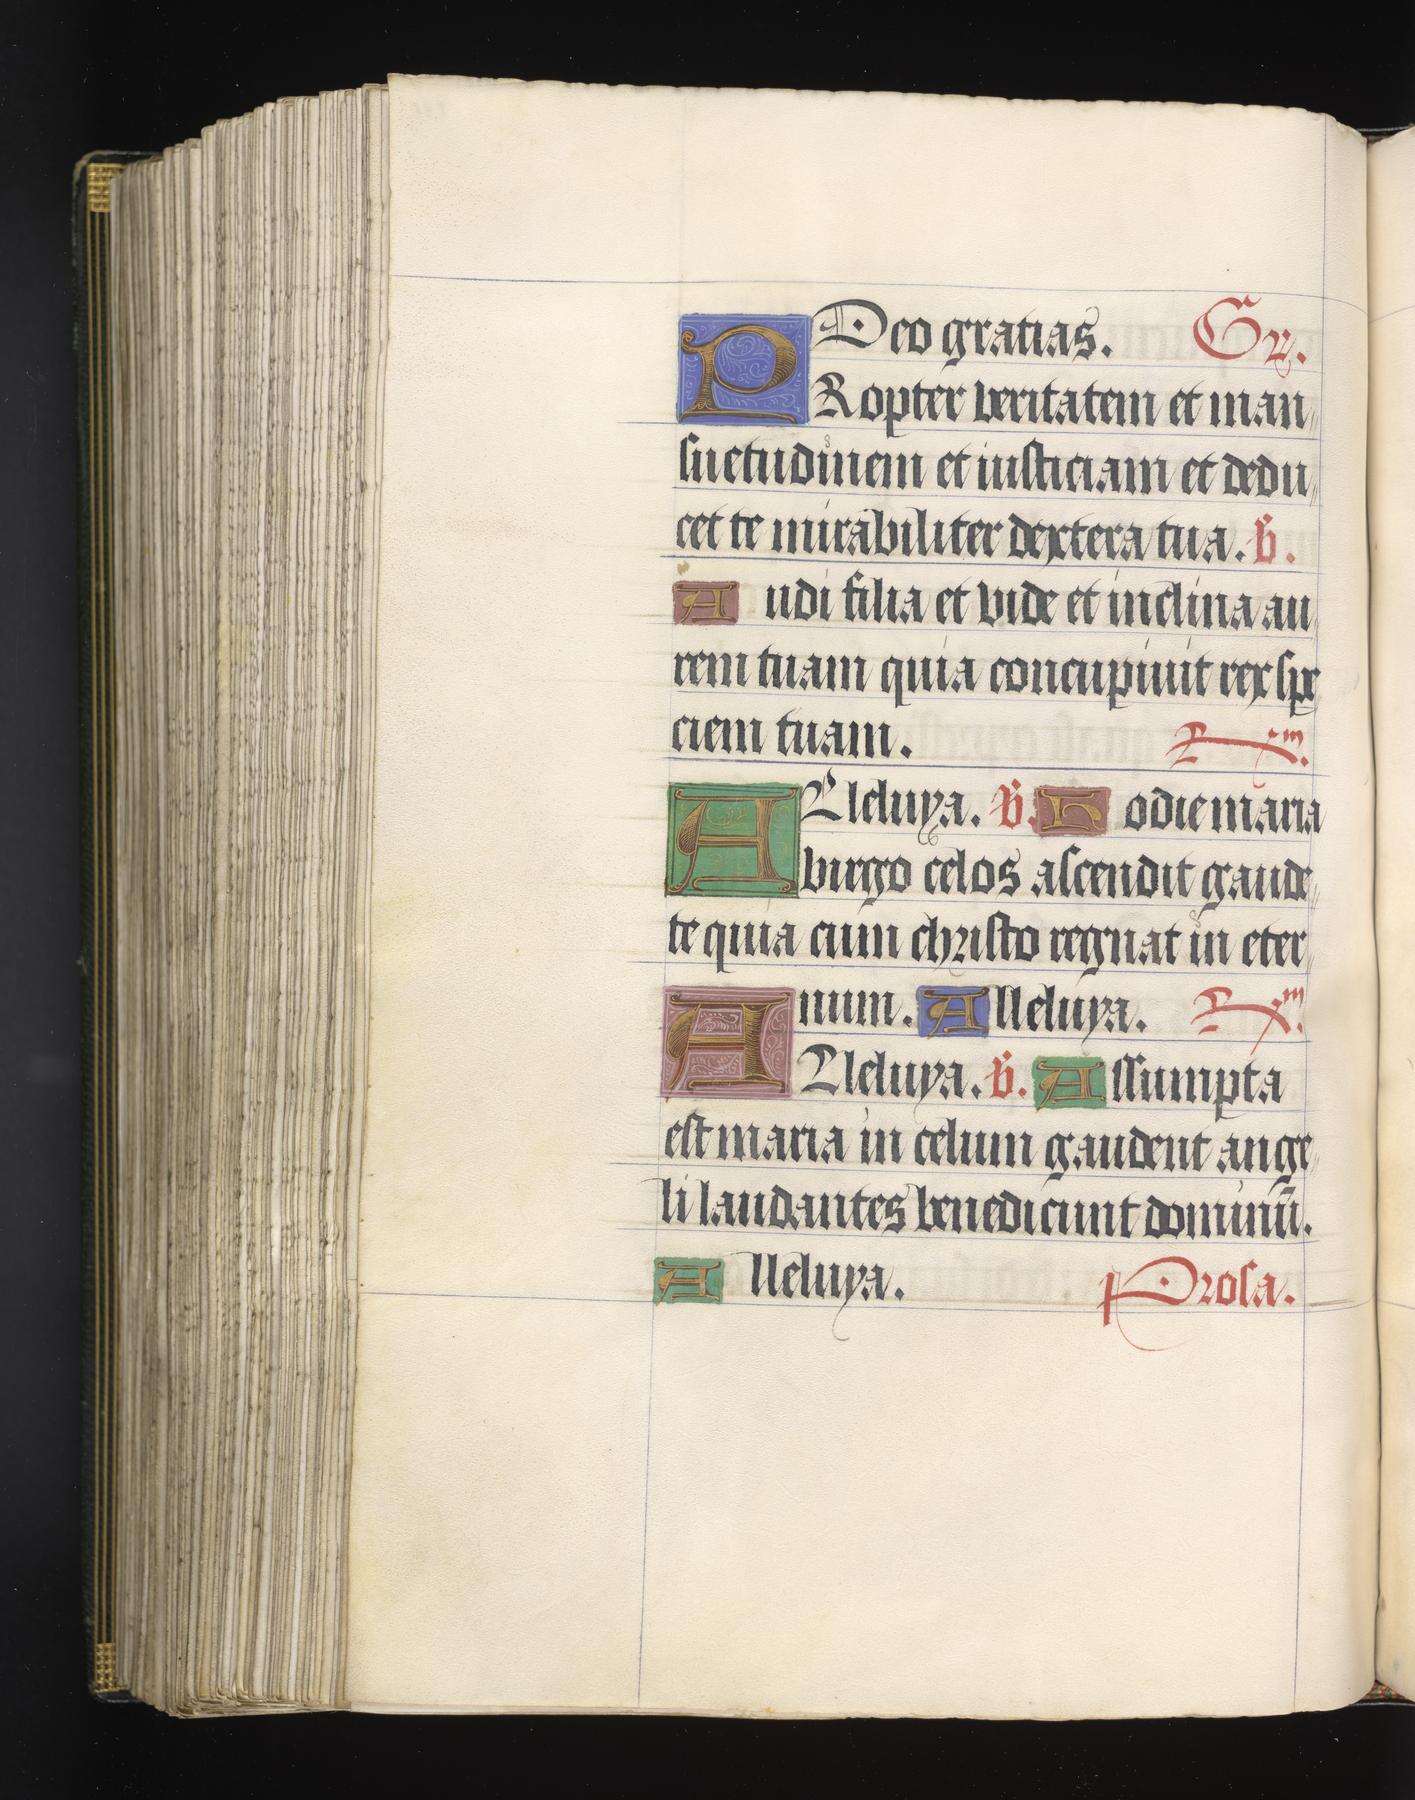 Deo gratias. Gr.
PRopter veritatem et man
suetudinem et iusticiam et dedu
cet te mirabiliter dextera tua. V.
Audi filia et vide et inclina au
rem tuam quia concupivit rex spe
ciem tuam.
ALleluya. V. Hodie maria
virgo celos ascendit gaude
te quia cum christo regnat in eter
num. Alleluya.
ALleluya. V. Assumpta
est maria in celum gaudent ange
li laudantes benedicunt dominū.
Alleluya. Prosa.